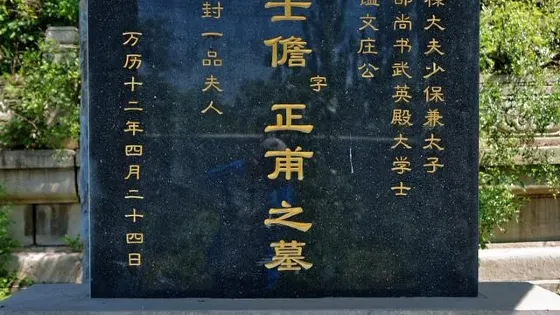 禄大夫少保兼太子
部尚书武英殿大学士
谥文庄公
士儋 字 正甫之墓
封一品夫人
万历十二年四月二十四日